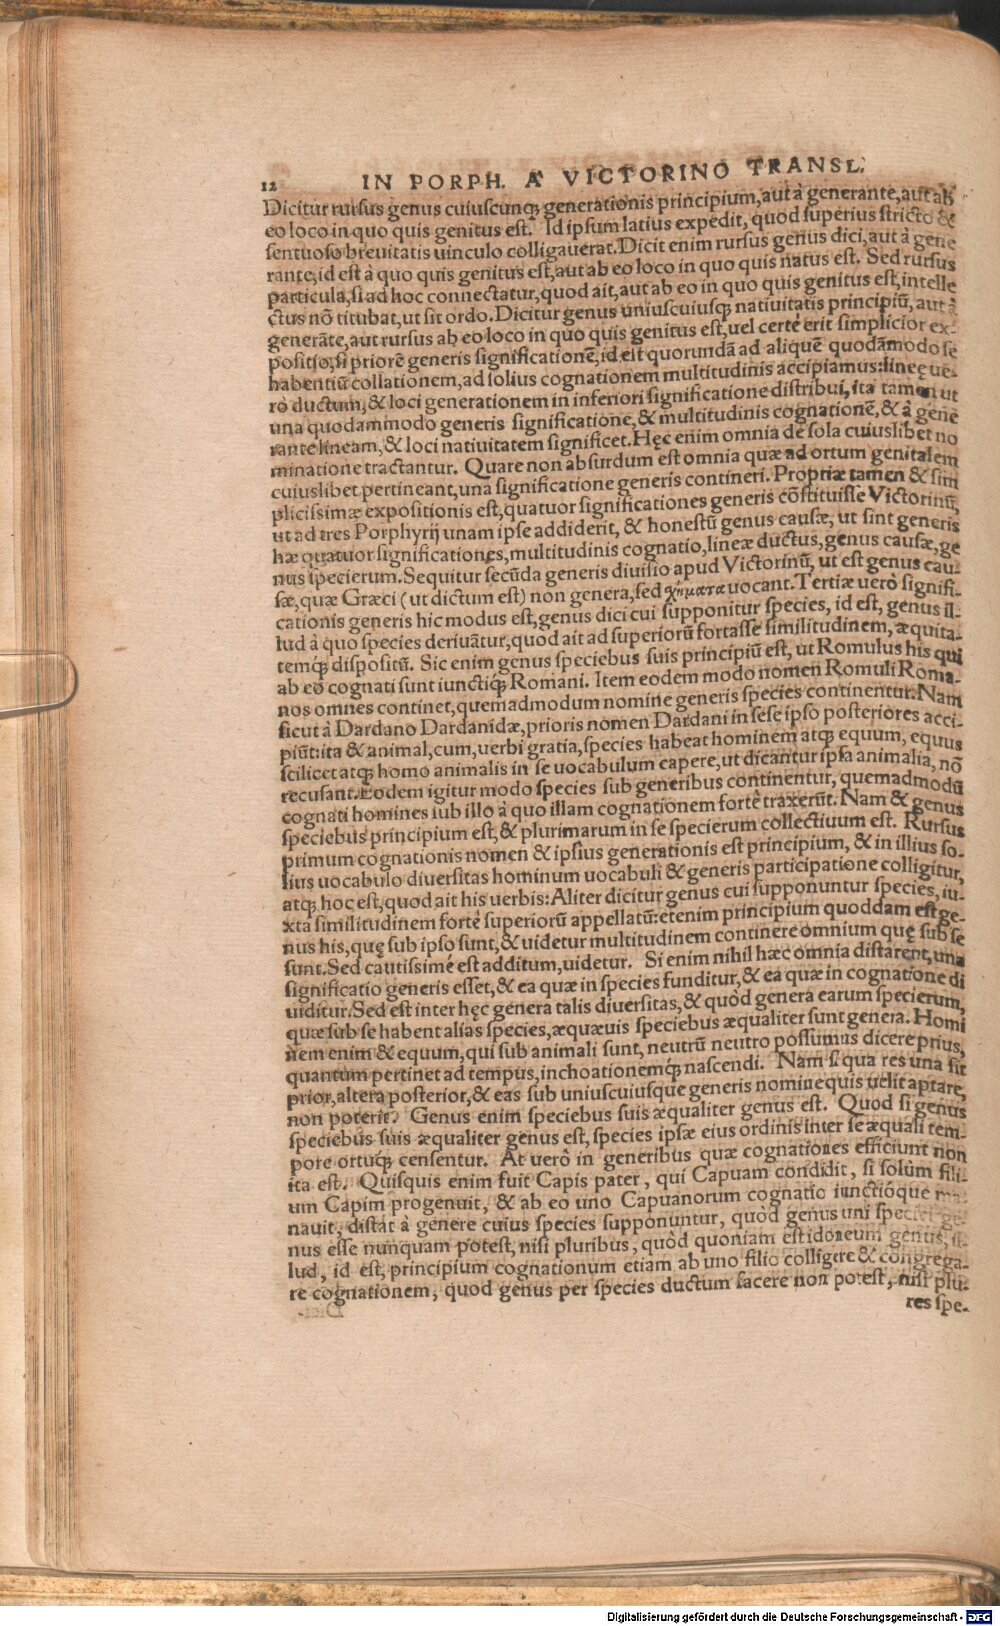 12 IN PORPH. A' VICTORINO TRANSL.
Dicitur rursus genus cuiuscunq; generationis principium, aut à generante, aut ab
eo loco in quo quis genitus est. Id ipsum latius expedit, quod superius stricto &
sentuoso breuitatis uinculo colligauerat. Dicit enim rursus genus dici, aut à gene
rante, id est à quo quis genitus est, aut ab eo loco in quo quis natus est. Sed rursus
particula, si ad hoc connectatur, quod ait, aut ab eo in quo quis genitus est, intelle
ctus nō titubat, ut sit ordo. Dicitur genus uniuscuiusq; natiuitatis principiū, aut à
generāte, aut rursus ab eo loco in quo quis genitus est, uel certè erit simplicior ex-
positio, si priorē generis significationē, id est quorundā ad aliquē quodāmodo se
habentiū collationem, ad solius cognationem multitudinis accipiamus: lineę ue-
rò ductum, & loci generationem in inferiori significatione distribui, ita tamen ut
una quodammodo generis significatione, & multitudinis cognationē, & à gene
rante lineam, & loci natiuitatem significet. Hęc enim omnia de sola cuiuslibet no
minatione tractantur. Quare non absurdum est omnia quæ ad ortum genitalem
cuiuslibet pertineant, una significatione generis contineri. Propriæ tamen & sim
plicissimæ expositionis est, quatuor significationes generis cōstituisse Victorinū,
ut ad tres Porphyrij unam ipse addiderit, & honestū genus causæ, ut sint generis
hæ quatuor significationes, multitudinis cognatio, lineæ ductus, genus causæ, ge
nus specierum. Sequitur secūda generis diuisio apud Victorinū, ut est genus cau-
sæ, quæ Græci (ut dictum est) non genera, sed χήματα uocant. Tertiæ uerò signifi-
cationis generis hic modus est, genus dici cui supponitur species, id est, genus il-
lud à quo species deriuātur, quod ait ad superiorū fortasse similitudinem, æquita-
temq; dispositū. Sic enim genus speciebus suis principiū est, ut Romulus his qui
ab eo cognati sunt iunctiq; Romani. Item eodem modo nomen Romuli Roma-
nos omnes continet, quemadmodum nomine generis species continentur. Nam
sicut à Dardano Dardanidæ, prioris nomen Dardani in sese ipso posteriores acci-
piūt: ita & animal, cum, uerbi gratia, species habeat hominem atq; equum, equus
scilicet atq; homo animalis in se uocabulum capere, ut dicantur ipsa animalia, nō
recusant. Eodem igitur modo species sub generibus continentur, quemadmodū
cognati homines sub illo à quo illam cognationem fortè traxerūt. Nam & genus
speciebus principium est, & plurimarum in se specierum collectiuum est. Rursus
primum cognationis nomen & ipsius generationis est principium, & in illius so-
lius uocabulo diuersitas hominum uocabuli & generis participatione colligitur,
atq; hoc est, quod ait his uerbis: Aliter dicitur genus cui supponuntur species, iu-
xta similitudinem fortè superiorū appellatū: etenim principium quoddam est ge-
nus his, quę sub ipso sunt, & uidetur multitudinem continere omnium quę sub se
sunt. Sed cautissimè est additum, uidetur. Si enim nihil hæc omnia distarent, una
significatio generis esset, & ea quæ in species funditur, & ea quæ in cognatione di
uiditur. Sed est inter hęc genera talis diuersitas, & quòd genera earum specierum,
quæ sub se habent alias species, æquæuis speciebus æqualiter sunt genera. Homi
nem enim & equum, qui sub animali sunt, neutrū neutro possumus dicere prius,
quantum pertinet ad tempus, inchoationemq; nascendi. Nam si qua res una sit
prior, altera posterior, & eas sub uniuscuiusque generis nomine quis uelit aptare,
non poterit. Genus enim speciebus suis æqualiter genus est. Quod si genus
speciebus suis æqualiter genus est, species ipsæ eius ordinis inter se æquali tem-
pore ortuq; censentur. At uerò in generibus quæ cognationes efficiunt non
ita est. Quisquis enim fuit Capis pater, qui Capuam condidit, si solùm fili-
um Capim progenuit, & ab eo uno Capuanorum cognatio iunctióque ma-
nauit, distat à genere cuius species supponuntur, quòd genus uni speciei ge-
nus esse nunquam potest, nisi pluribus, quòd quoniam est idoneum genus, il-
lud, id est, principium cognationum etiam ab uno filio colligere & congrega-
re cognationem, quod genus per species ductum facere non potest, nisi plu-
res spe-
Digitalisierung gefördert durch die Deutsche Forschungsgemeinschaft - DFG